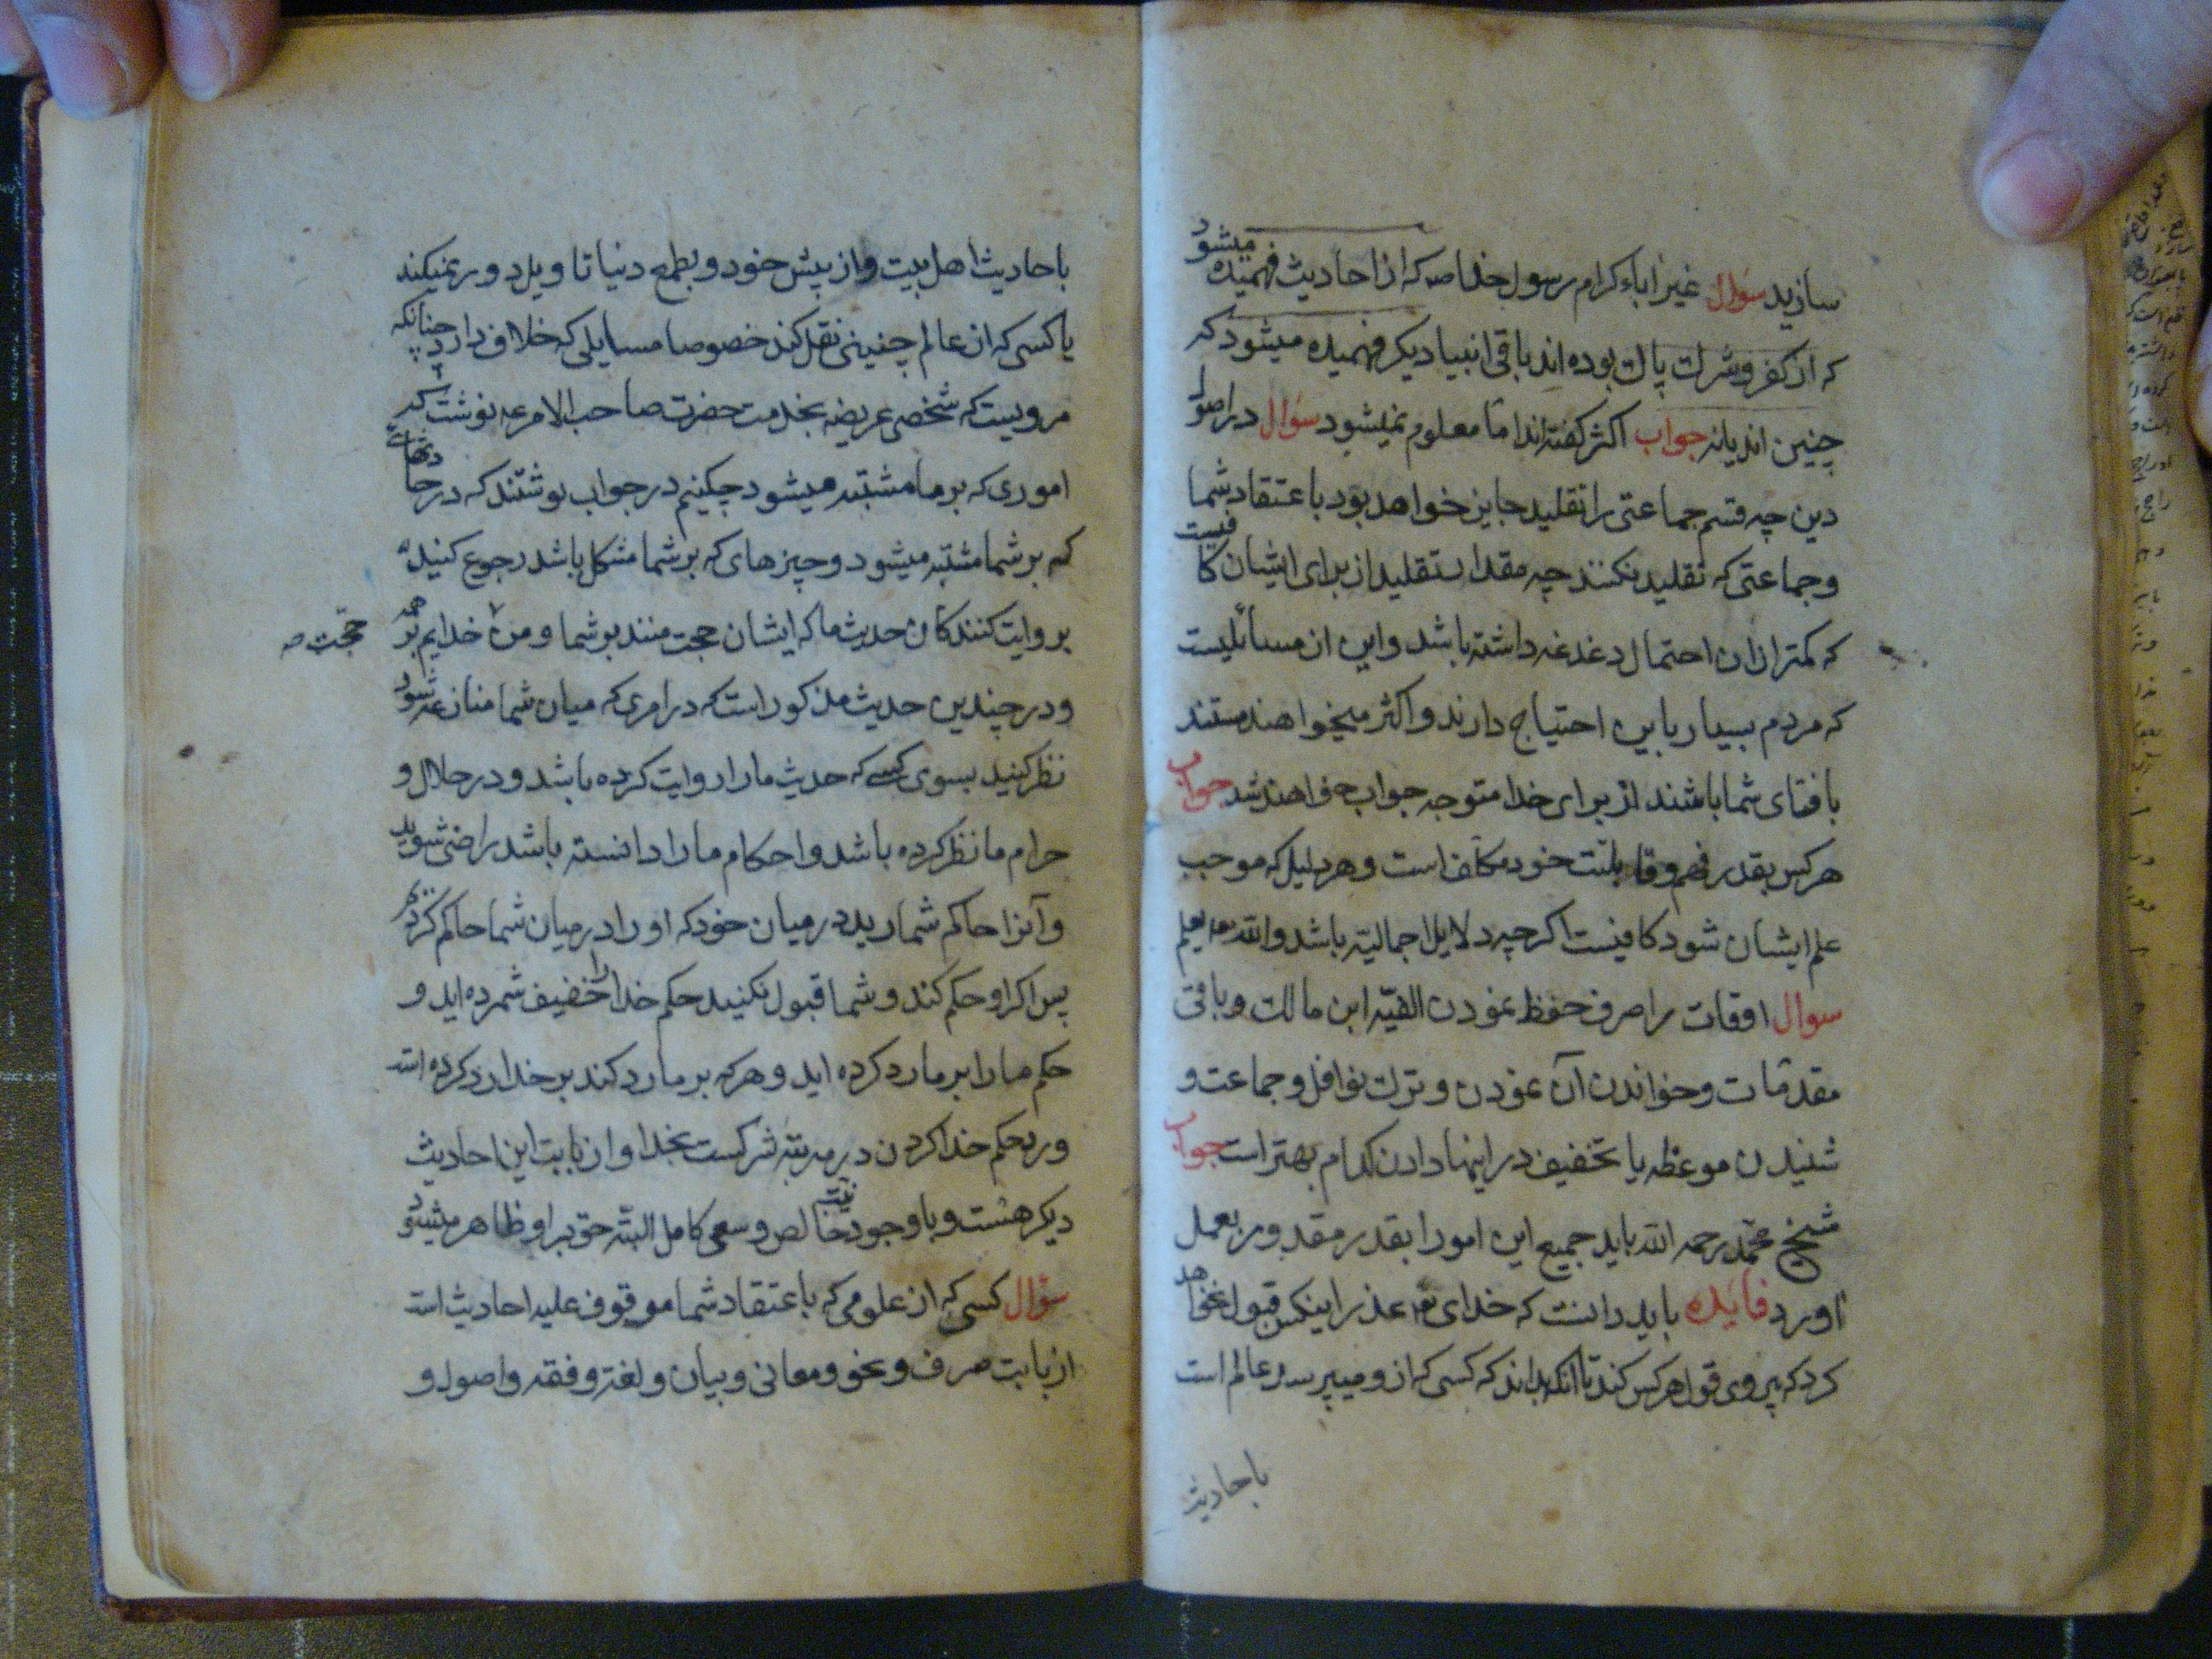 سازید سؤال غیر اباء کرام رسول خدا صه که از احادیث فهمیده میشود
که از کفر و شرك پاك بوده اند باقی انبیا دیکر فهمیده میشود که
چنین اند یا نه جواب اکثر کفته اند اما معلوم نمیشود سؤال در اصول
دین چه قسم جماعتی را تقلید جایز خواهد بود باعتقاد شما
و جماعتی که تقلید نکنند چه مقدار تقلید از برای ایشان کافیست
که کمتر از ان احتمال دغدغه داشته باشد و این از مسائلیست
که مردم بسیار باین احتیاج دارند و اکثر میخواهند مستند
بافتای شما باشند از برای خدا متوجه جواب خواهند شد جواب
هر کس بقدر فهم و قابلیت خود مکلف است و هر دلیل که موجب
علم ایشان شود کافیست اکر چه دلایل اجمالیه باشد والله یعلم
سوال اوقات را صرف حفظ نمودن الفیه ابن مالك و باقی
مقدمات و خواندن آن نمودن و ترك نوافل و جماعت و
شنیدن موعظه یا تخفیف در اینها دادن کدام بهتر است جواب
شیخ محمد رحمه الله باید جمیع این امور را بقدر مقدور بعمل
اورد فایده باید دانست که خدای تعه عذر اینکس قبول نخواهد
کرد که پیروی قول هر کس کند تا انکه بداند که کسی که از و میپرسد عالم است
باحادیث
باحادیث اهل بیت و از پیش خود و بطمع دنیا تاویل دور نمیکند
یا کسی که از عالم چنینی نقل کند خصوصا مسایلی که خلاف دارد چنانکه
مرویست که شخصی عریضه بخدمت حضرت صاحب الامر عه نوشت که
اموری که بر ما مشتبه میشود چکنیم در جواب نوشتند که در حادثهای
که بر شما مشتبه میشود و چیزهای که بر شما مشکل باشد رجوع کنید
بروایت کنندکان حدیث ما که ایشان حجت منند بر شما و من خدایم بر همه
حجت صه
و در چندین حدیث مذکور است که در امری که میان شما منازعه شود
نظر کنید بسوی کسی که حدیث ما را روایت کرده باشد و در حلال و
حرام ما نظر کرده باشد و احکام ما را دانسته باشد راضی شوید
و آنرا حاکم شمارید در میان خود که او را در میان شما حاکم کردیم
پس اکر او حکم کند و شما قبول نکنید حکم خدا را خفیف شمرده اید و
حکم ما را بر ما رد کرده اید و هر که بر ما رد کند بر خدا رد کرده است
و رد حکم خدا کردن در مرتبه شرکست بخدا و از بابت این احادیث
دیکر هست و با وجود نیت خالص و سعی کامل البته حق بر او ظاهر میشود
سؤال کسی که از علومی که باعتقاد شما موقوف علیه احادیث است
از بابت صرف و نحو و معانی و بیان و لغة و فقه و اصول و